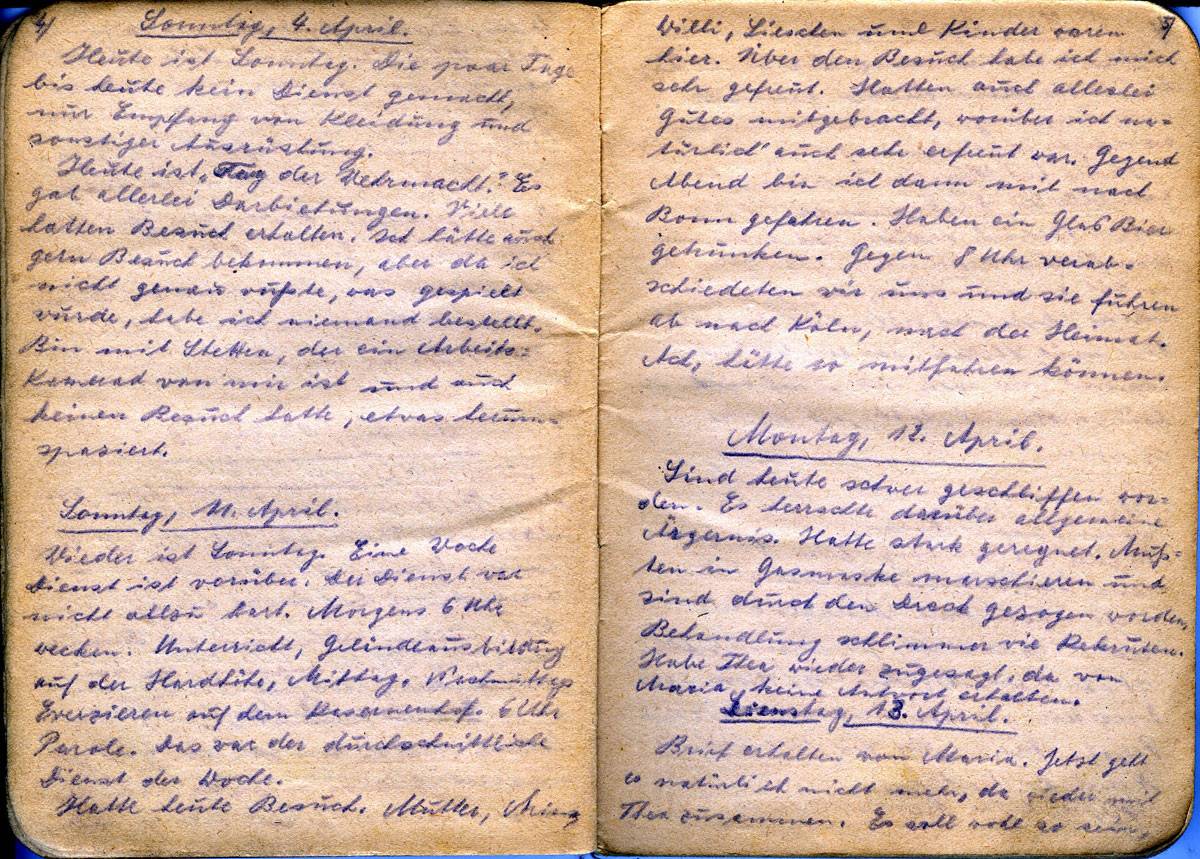 4/
Sonntag, 4. April.
Heute ist Sonntag. Die paar Tage
bis heute kein Dienst gemacht,
nur Empfang von Kleidung und
sonstiger Ausrüstung.
Heute ist „Tag der Wehrmacht." Es
gab allerlei Darbietungen. Viele
hatten Besuch erhalten. Ich hätte auch
gern Besuch bekommen, aber da ich
nicht genau wußte, was gespielt
wurde, habe ich niemand bestellt.
Bin mit Stetten, der ein Arbeits-
kamerad von mir ist und auch
keinen Besuch hatte, etwas herum-
spaziert.
Sonntag, 11. April.
Wieder ist Sonntag. Eine Woche
Dienst ist vorüber. Der Dienst war
nicht allzu hart. Morgens 6 Uhr
wecken. Unterricht, Geländeausbildung
auf der Hardthöhe, Mittag. Nachmittags
Exerzieren auf dem Kasernenhof. 6 Uhr
Parole. Das war der durchschnittliche
Dienst der Woche.
Hatte heute Besuch. Mutter,
5/
Willi, Lieschen und Kinder waren
hier. Über den Besuch habe ich mich
sehr gefreut. Hatten auch allerlei
Gutes mitgebracht, worüber ich na-
türlich auch sehr erfreut war. Gegend
Abend bin ich dann mit nach
Bonn gefahren. Haben ein Glas Bier
getrunken. Gegen 8 Uhr verab-
schiedeten wir uns und sie fuhren
ab nach Köln, nach der Heimat.
Ach, hätte so mitfahren können.
Montag, 12. April.
Sind heute schwer geschliffen wor-
den. Es herrschte darüber allgemeine
Ärgernis. Hatte stark geregnet. Muß-
ten in Gasmaske marschieren und
sind durch den Dreck gezogen worden.
Behandlung schlimmer wie Rekruten.
Habe Thea wieder zugesagt, da von
Maria keine Antwort erhalten.
Dienstag, 13. April.
Brief erhalten von Maria. Jetzt geht
es natürlich nicht mehr, da wieder mit
Thea zusammen. Es soll wohl so sein,